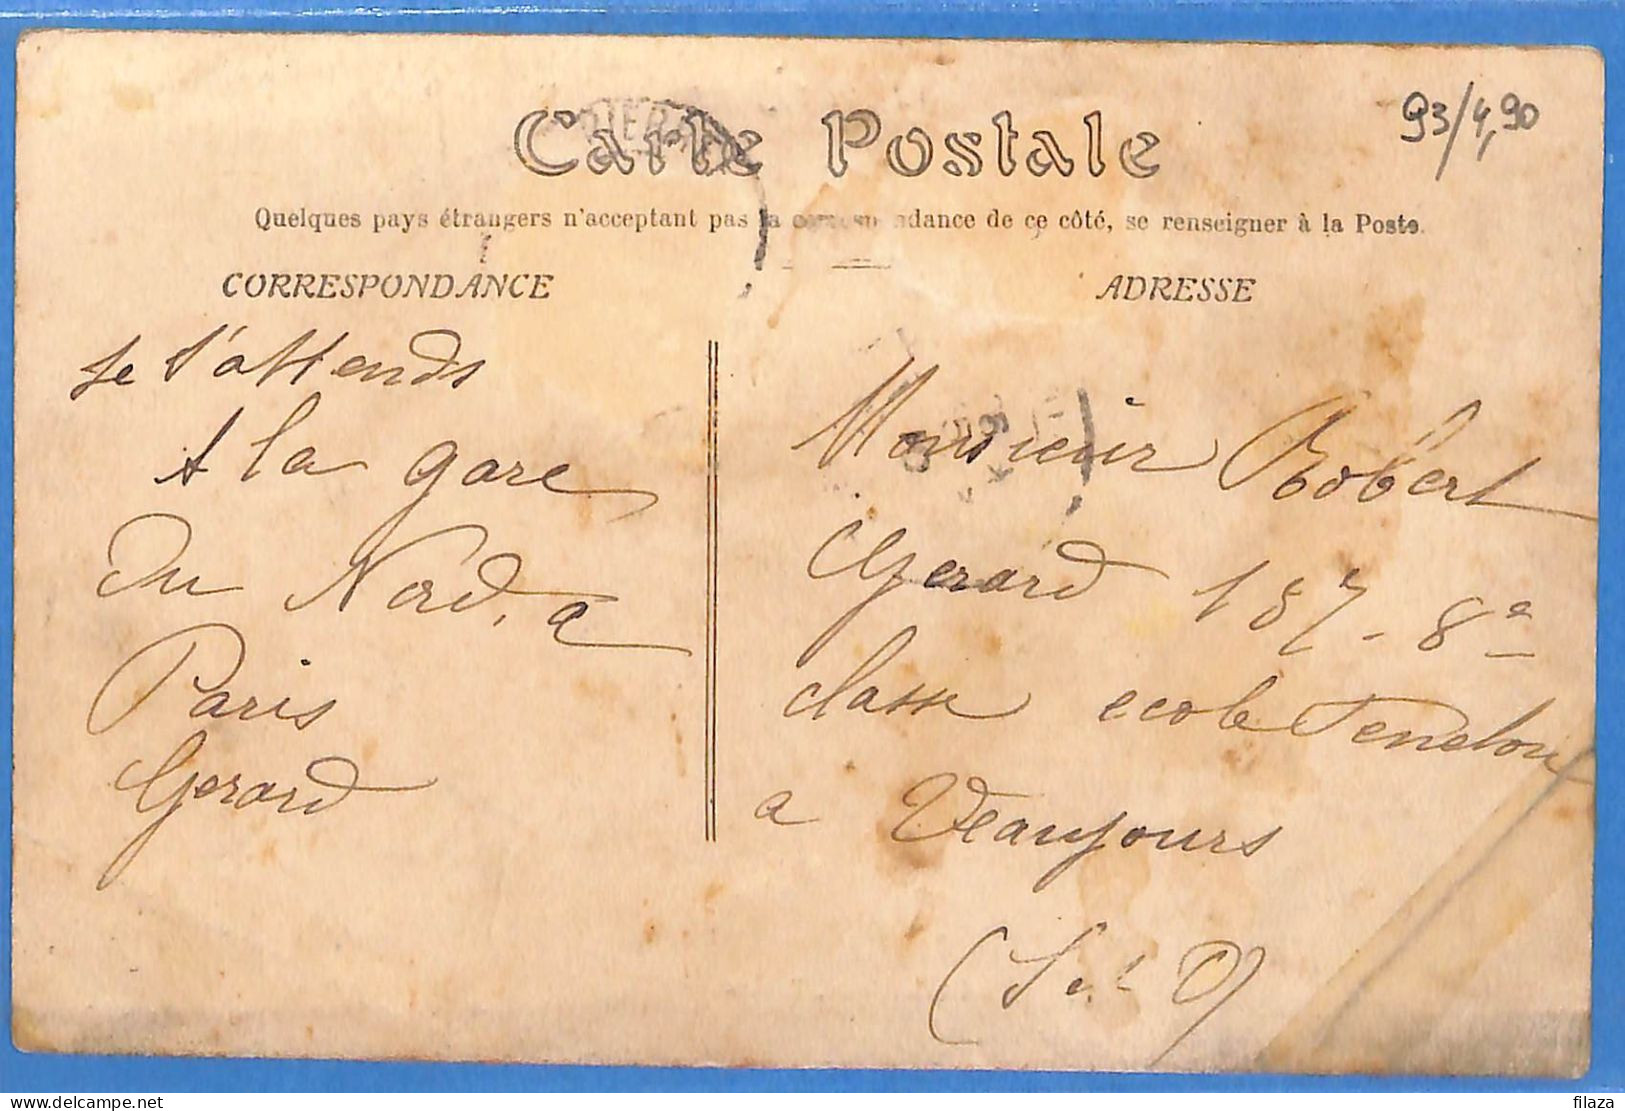 93/4,90
Carte Postale
Quelques pays étrangers n'acceptant pas la correspondance de ce côté, se renseigner à la Poste.
CORRESPONDANCE
Je t'attends
A la gare
Du Nord, a
Paris
Gerard
ADRESSE
Monsieur Robert
Gerard 187 - 8e
classe ecole Fenelon
a Veaujours
(S et O)
delcampe.net
filaza